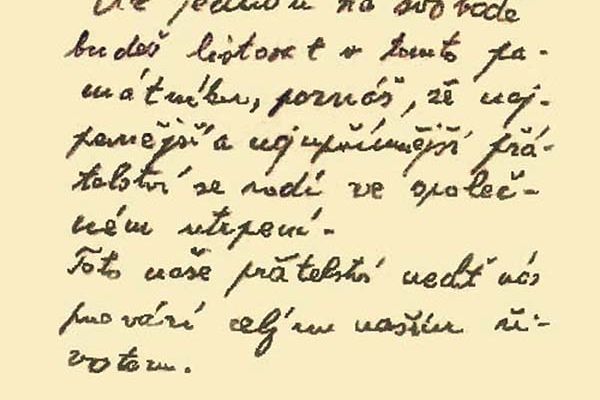 Až jednou na svobodě
budeš listovat v tomto pa-
mátníku, poznáš, že nej-
pevnější a nejupřímnější přá-
telství se rodí ve společ-
ném utrpení.
Toto naše přátelství nechť nás
provází celým naším ži-
votem.